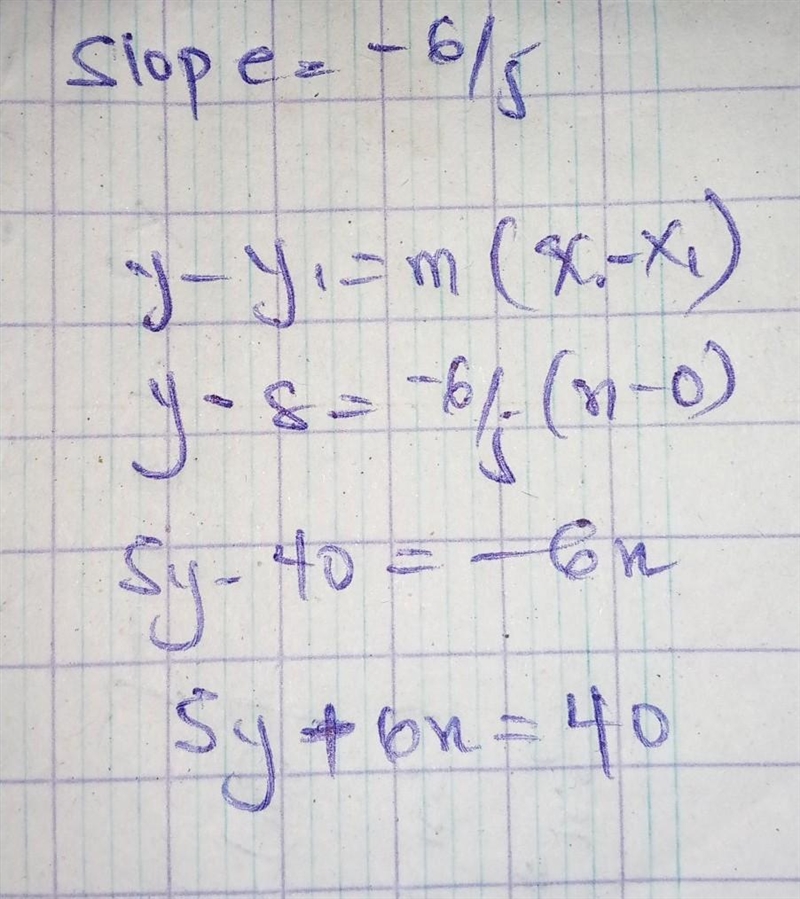 Slope = -6/5
y - y₁ = m (x - x₁)
y - 8 = -6/5 (x - 0)
5y - 40 = -6x
5y + 6x = 40